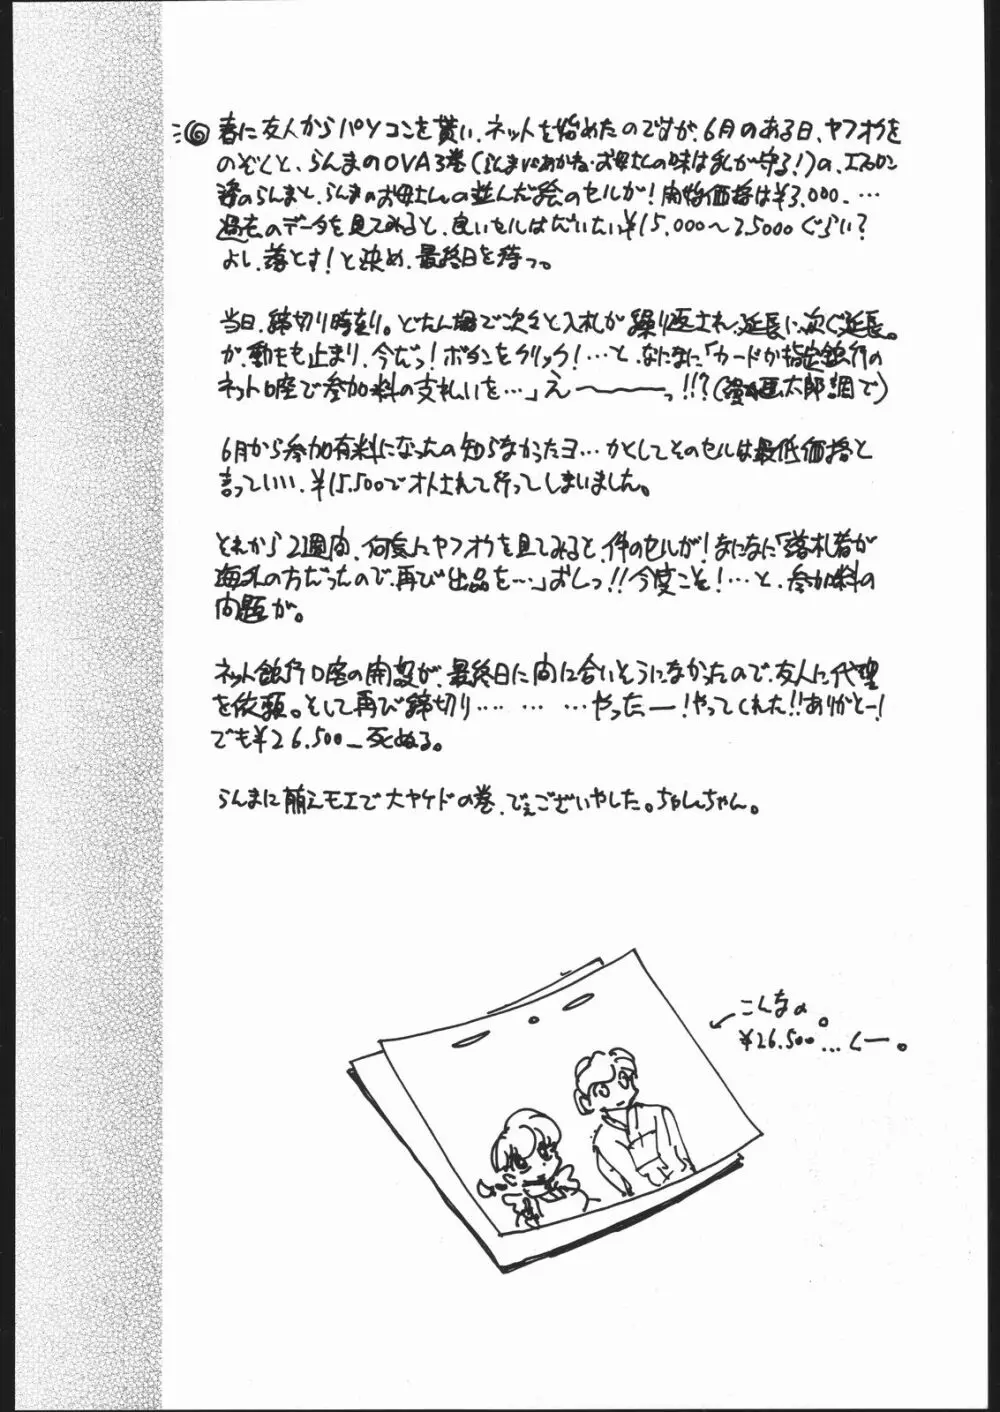 ⑥ 春に友人からパソコンを貰い、ネットを始めたのですが、6月のある日、ヤフオクを
のぞくと、らんまのOVA3巻(らんまVSあかね・お母さんの味は私が守る!)の、エプロン
姿のらんまと、らんまのお母さんの並んだ絵のセルが!開始価格は¥3,000、…
過去のデータを見てみると、良いセルはだいたい¥15,000〜25000ぐらい?
よし、落とす!と決め、最終日を待つ。
当日、締切り時刻。どたん場で次々と入札が繰り返され、延長に次ぐ延長。
が、動きも止まり、今だっ!ボタンをクリック!…と、なになに「カードか指定銀行の
ネット口座で参加料の支払いを…」え〜〜っ!!?(漫☆画太郎調で)
6月から参加有料になったの知らなかったヨ…かくしてそのセルは最低価格と
言っていい、¥15,500でオトされて行ってしまいました。
それから2週間、何度にヤフオクを見てみると、件のセルが!なになに「落札者が
海外の方だったので、再び出品を…」おしっ!!今度こそ!…と、参加料の
問題が。
ネット銀行口座の開設が、最終日に間に合いそうになかったので、友人に代理
を依頼。そして再び締切り……… …やったー!やってくれた!!ありがとー!
でも¥26,500_死ぬる。
らんまに萌えモエで大ヤケドの巻、でぇございやした。ちゃんちゃん。
こんなの。
¥26,500…くー。